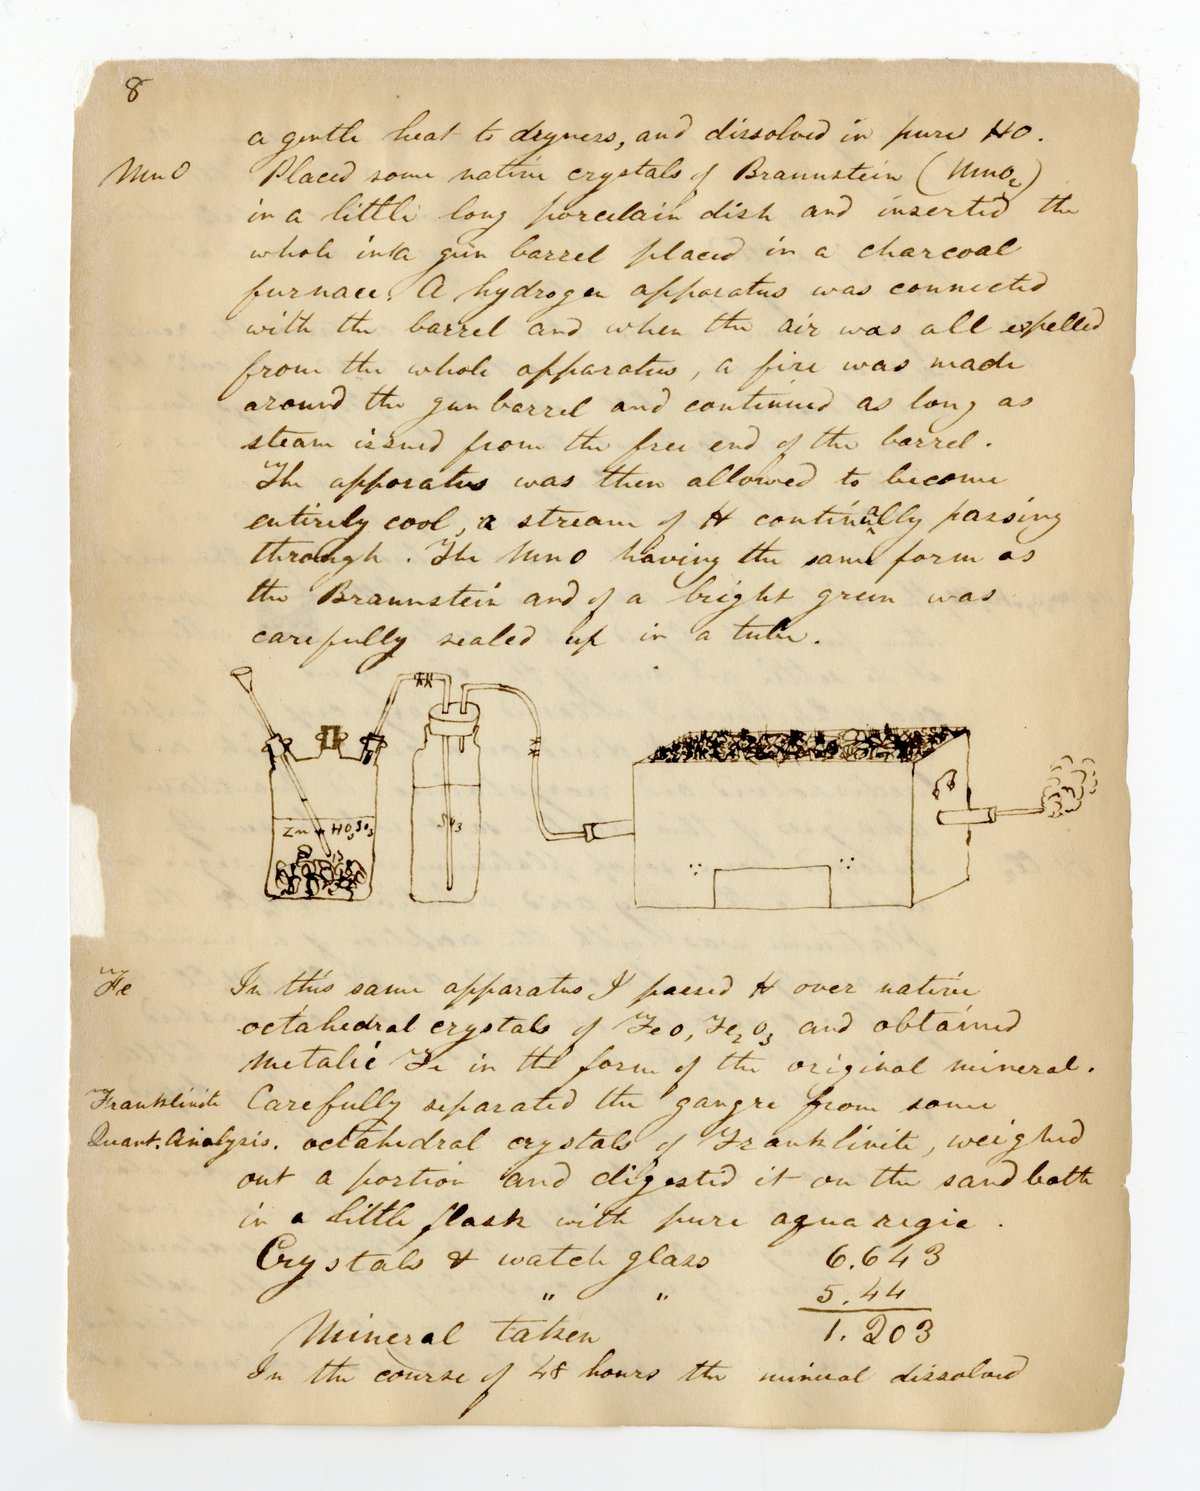 8
a gentle heat to dryness, and dissolved in pure HO.
MnO Placed some native crystals of Braunstein (MnO2)
in a little long porcelain dish and inserted the
whole into a gun barrel placed in a charcoal
furnace. A hydrogen apparatus was connected
with the barrel and when the air was all expelled
from the whole apparatus, a fire was made
around the gun barrel and continued as long as
steam issued from the free end of the barrel.
The apparatus was then allowed to become
entirely cool, a stream of H continually passing
through. The MnO having the same form as
the Braunstein and of a bright green was
carefully sealed up in a tube.
Zn + HO, SO3
SO3
Fe In this same apparatus I passed H over native
octahedral crystals of FeO, Fe2O3 and obtained
metalic Fe in the form of the original mineral.
Franklinite Carefully separated the gangre from some
Quant. Analysis. octahedral crystals of Franklinite, weighed
out a portion and digested it on the sand bath
in a little flask with pure aqua regia.
Crystals & watch glass 6.643
" " 5.44
Mineral taken 1.203
In the course of 48 hours the mineral dissolved